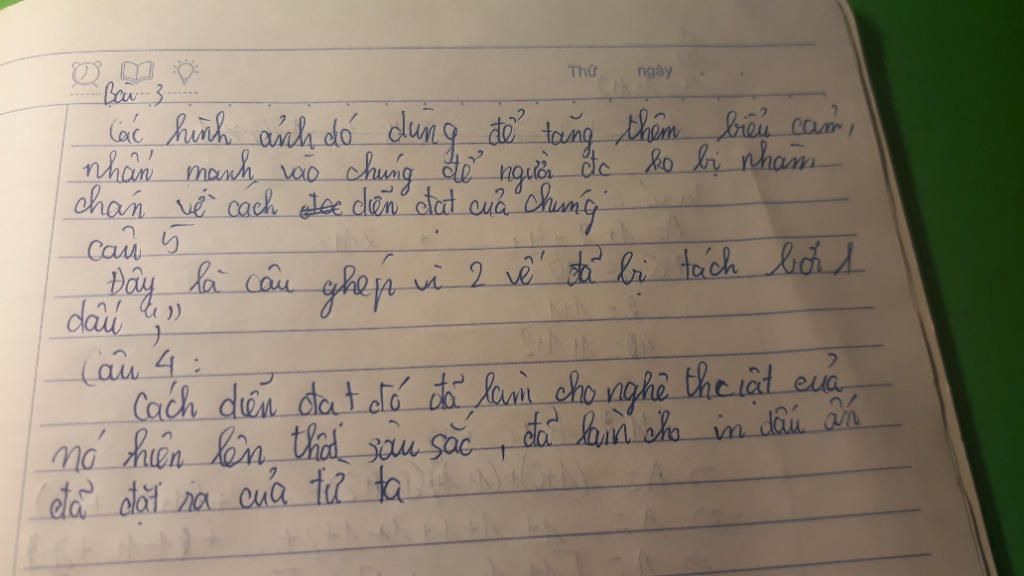 Thứ ngày
Bài 3
Các hình ảnh đó dùng để tăng thêm biểu cảm,
nhấn mạnh vào chúng để người đc ko bị nhàm
chán về cách diễn đạt của chúng
câu 5
Đây là câu ghép vì 2 vế đã bị tách bởi 1
dấu “,”
Câu 4 :
Cách diễn đạt đó đã làm cho nghệ của
nó hiện lên thật sâu sắc, đã làm cho in dấu ấn
đã đặt ra của từ ta